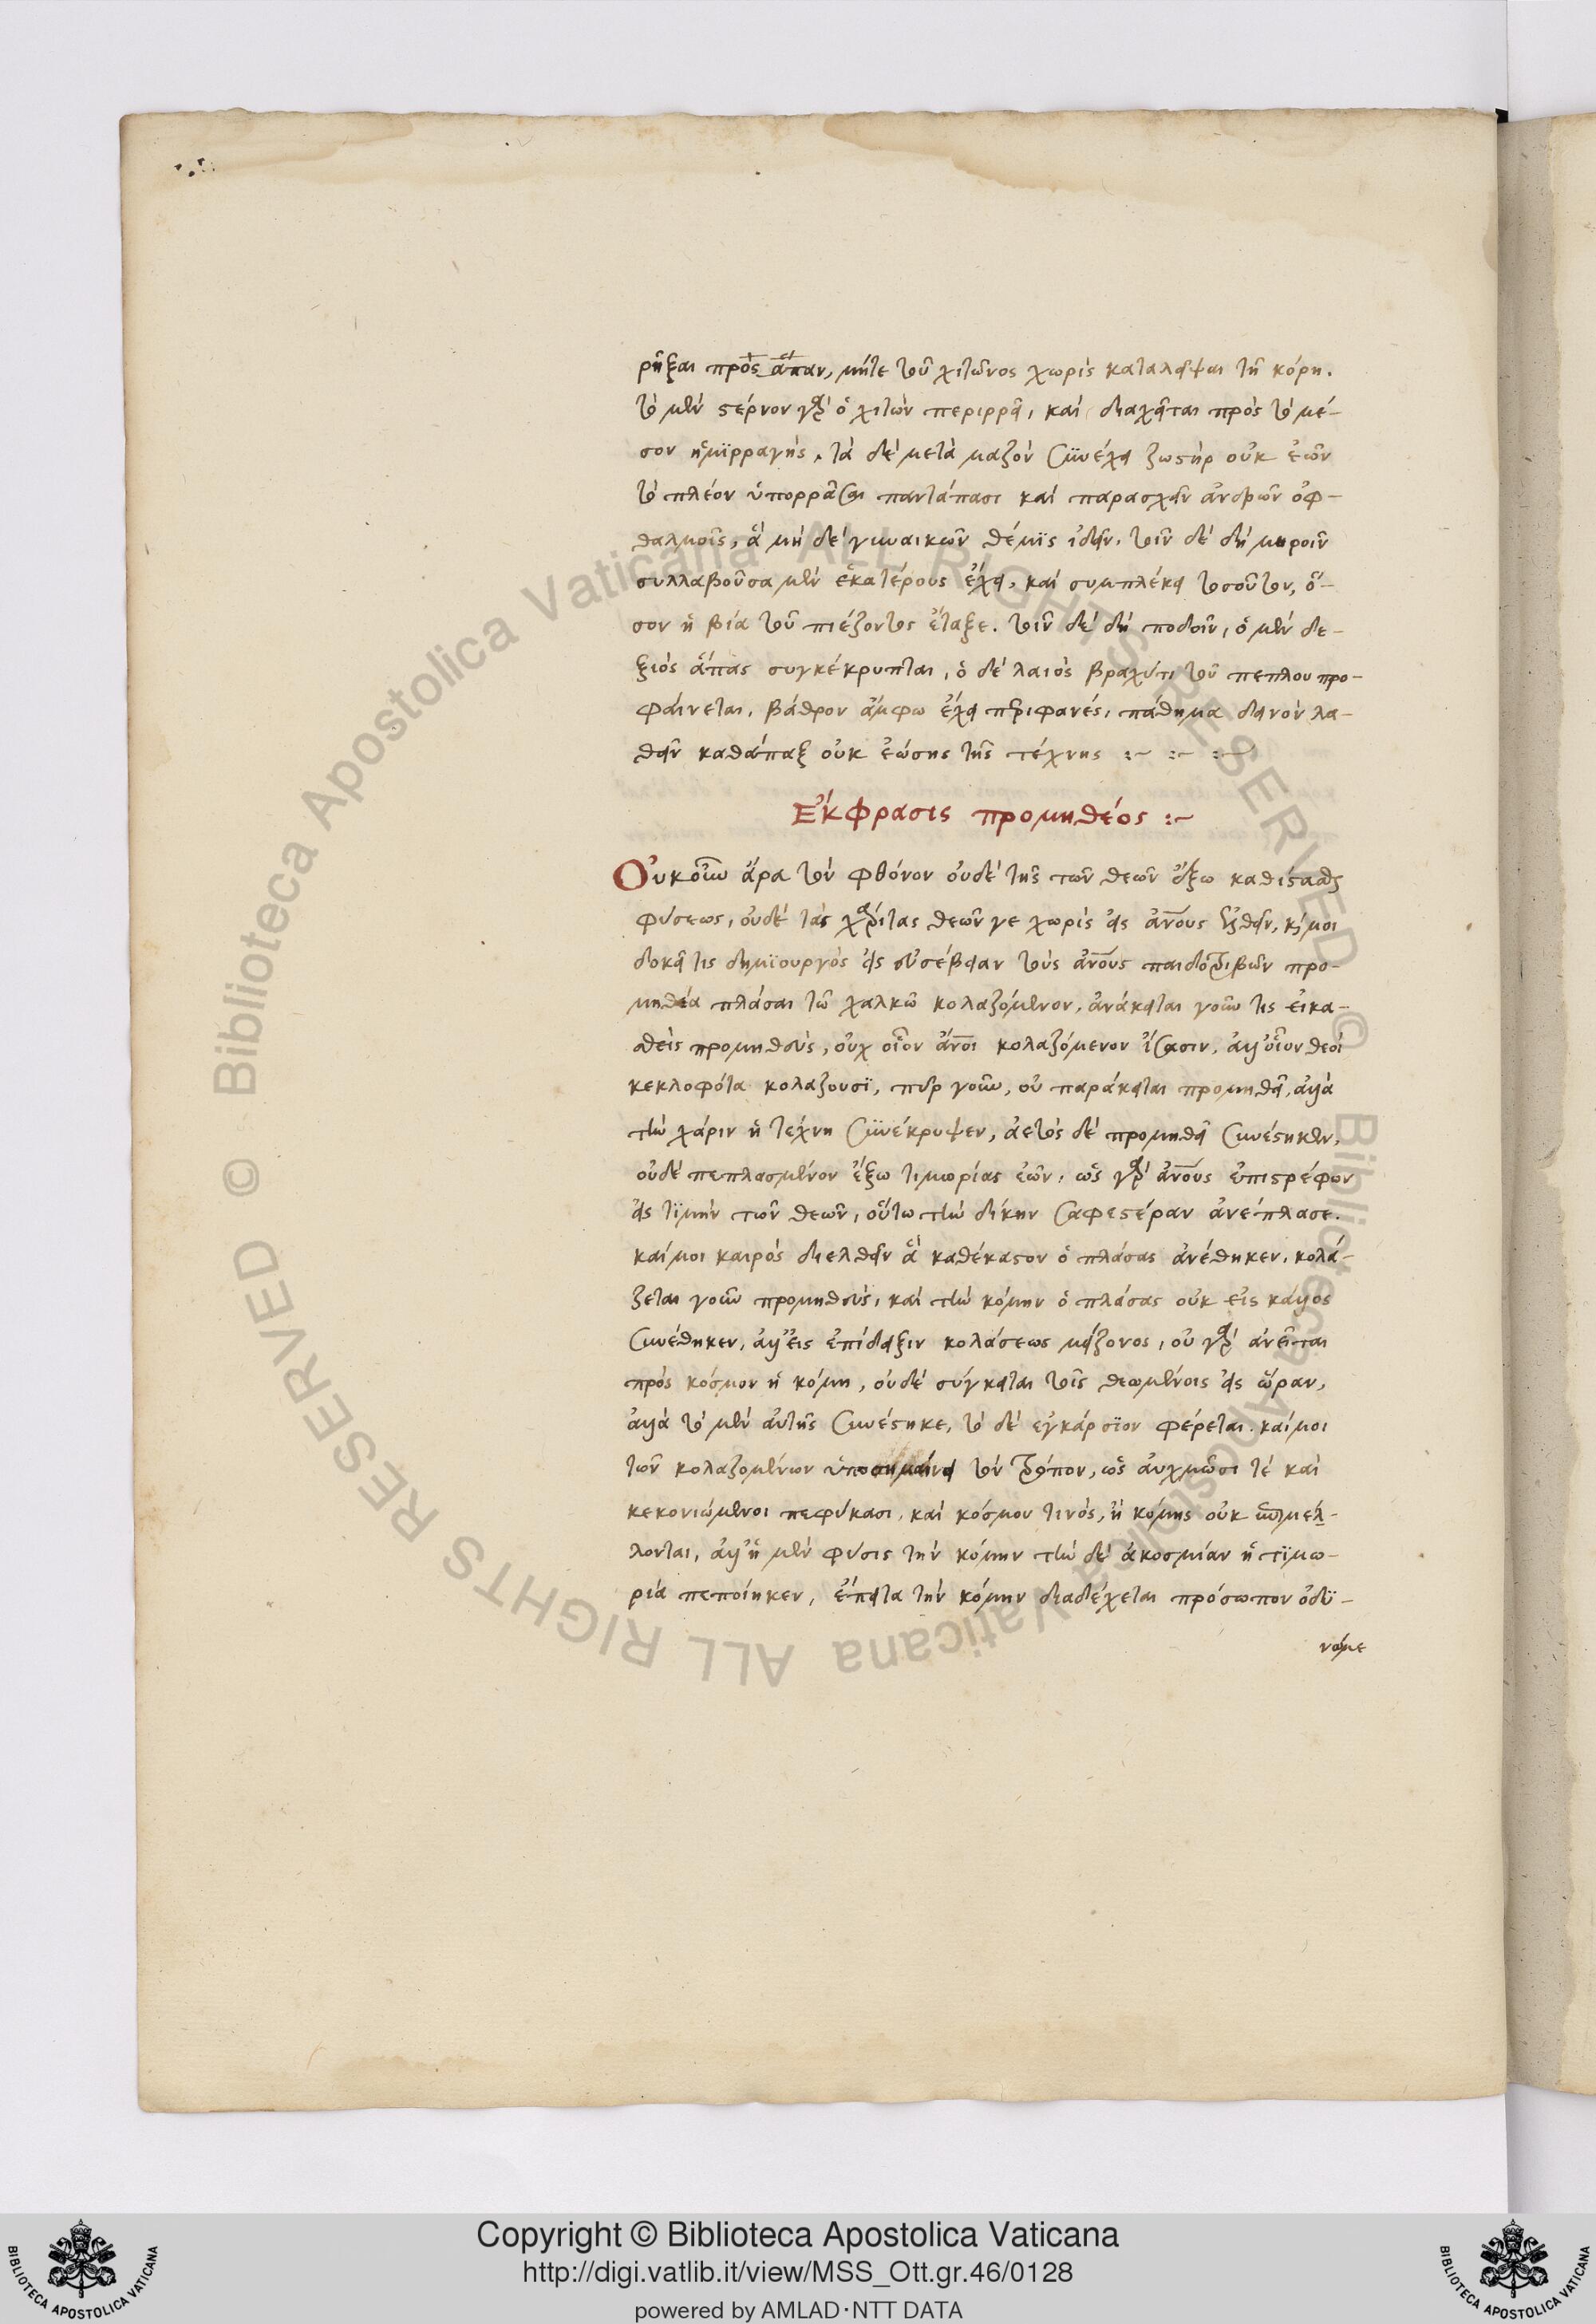 ρῆξαι πρὸς ἅπαν, μήτε τοῦ χιτῶνος χωρὶς καταλεῖψαι τῇ κόρῃ.
τὸ μὲν στέρνον γὰρ ὁ χιτὼν περιρρεῖ, καὶ διαχεῖται πρὸς τὸ μέ-
σον ἡμϊρραγής. τὰ δὲ μετὰ μαζὸν συνέχει ζωστὴρ οὐκ ἐῶν
τὸ πλέον ὑπορρᾶσαι παντάπασι καὶ παρασχεῖν ἀνδρῶν ὀφ-
θαλμοῖς, ἃ μὴ δὲ γυναικῶν θέμϊς ἰδεῖν. τοῖν δὲ δὴ μηροῖν
συλλαβοῦσα μὲν ἑκατέρους ἔχει, καὶ συμπλέκει τοσοῦτον, ὅ-
σον ἡ βία τοῦ πιέζοντος ἔταξε. τοῖν δὲ δὴ ποδοῖν, ὁ μὲν δε-
ξιὸς ἅπας συγκέκρυπται, ὁ δὲ λαιὸς βραχύτι τοῦ πεπλου προ-
φαίνεται. βάθρον ἄμφω ἔχει περιφανές, πάθημα δεινὸν λα-
θεῖν καθάπαξ οὐκ ἐώσης τῆς τέχνης :~ :~ :~
Ἔκφρασις προμηθέος :~
Οὐκοῦν ἄρα τὸν φθόνον οὐδὲ τῆς τῶν θεῶν ἔξω καθίστασθαι
φύσεως, οὐδὲ τὰς χάριτας θεῶν γε χωρὶς εἰς ἀνους ἐλθεῖν, καί μοι
δοκεῖ τις δημϊουργὸς εἰς εὐσέβειαν τοὺς ἀνους παιδοτριβῶν προ-
μηθέα πλάσαι τῷ χαλκῷ κολαζόμενον, ἀνάκειται γοῦν τις εἰκα-
σθεὶς προμηθεὺς, οὐχ οἷον ἀνοι κολαζόμενον ἴσασιν, ἀλλ' οἷον θεοὶ
κεκλοφότα κολαζουσϊ, πῦρ γοῦν, οὐ παράκειται προμηθεῖ, ἀλλὰ
τὴν χάριν ἡ τέχνη συνέκρυψεν, ἀετὸς δὲ προμηθεῖ συνέστηκεν,
οὐδὲ πεπλασμένον ἔξω τιμωρίας ἐῶν. ὡς γὰρ ἀνους ἐπιστρέφων
εἰς τϊμὴν τῶν θεῶν, οὕτω τὴν δίκην σαφεστέραν ἀνέπλασε.
καί μοι καιρὸς διελθεῖν ἃ καθέκαστον ὁ πλάσας ἀνέθηκεν. κολά-
ζεται γοῦν προμηθεὺς, καὶ τὴν κόμην ὁ πλάσας οὐκ εἰς κάλλος
συνέθηκεν, ἀλλ' εἰς ἐπίδειξιν κολάσεως μείζονος, οὐ γὰρ ἀνεῖται
πρὸς κόσμον ἡ κόμη, οὐδὲ σύγκειται τοῖς θεωμένοις εἰς ὥραν,
ἀλλὰ τὸ μὲν αὐτῆς συνέστηκε, τὸ δὲ εγκάρσϊον φέρεται. καί μοι
τῶν κολαζομένων ὑποσημαίνει τὸν τρόπον, ὡς αὐχμῶσι τὲ καὶ
κεκονιώμενοι πεφύκασι, καὶ κόσμου τινὸς, ἢ κόμης οὐκ ἐπιμέλ-
λονται, ἀλλ' ἡ μὲν φύσις τὴν κόμην τὴν δὲ ἀκοσμίαν ἡ τϊμω-
ρία πεποίηκεν, ἔπειτα τὴν κόμην διαδέχεται πρόσωπον ὀδϋ-
νώμε
Copyright © Biblioteca Apostolica Vaticana
http://digi.vatlib.it/view/MSS_Ott.gr.46/0128
powered by AMLAD·NTT DATA